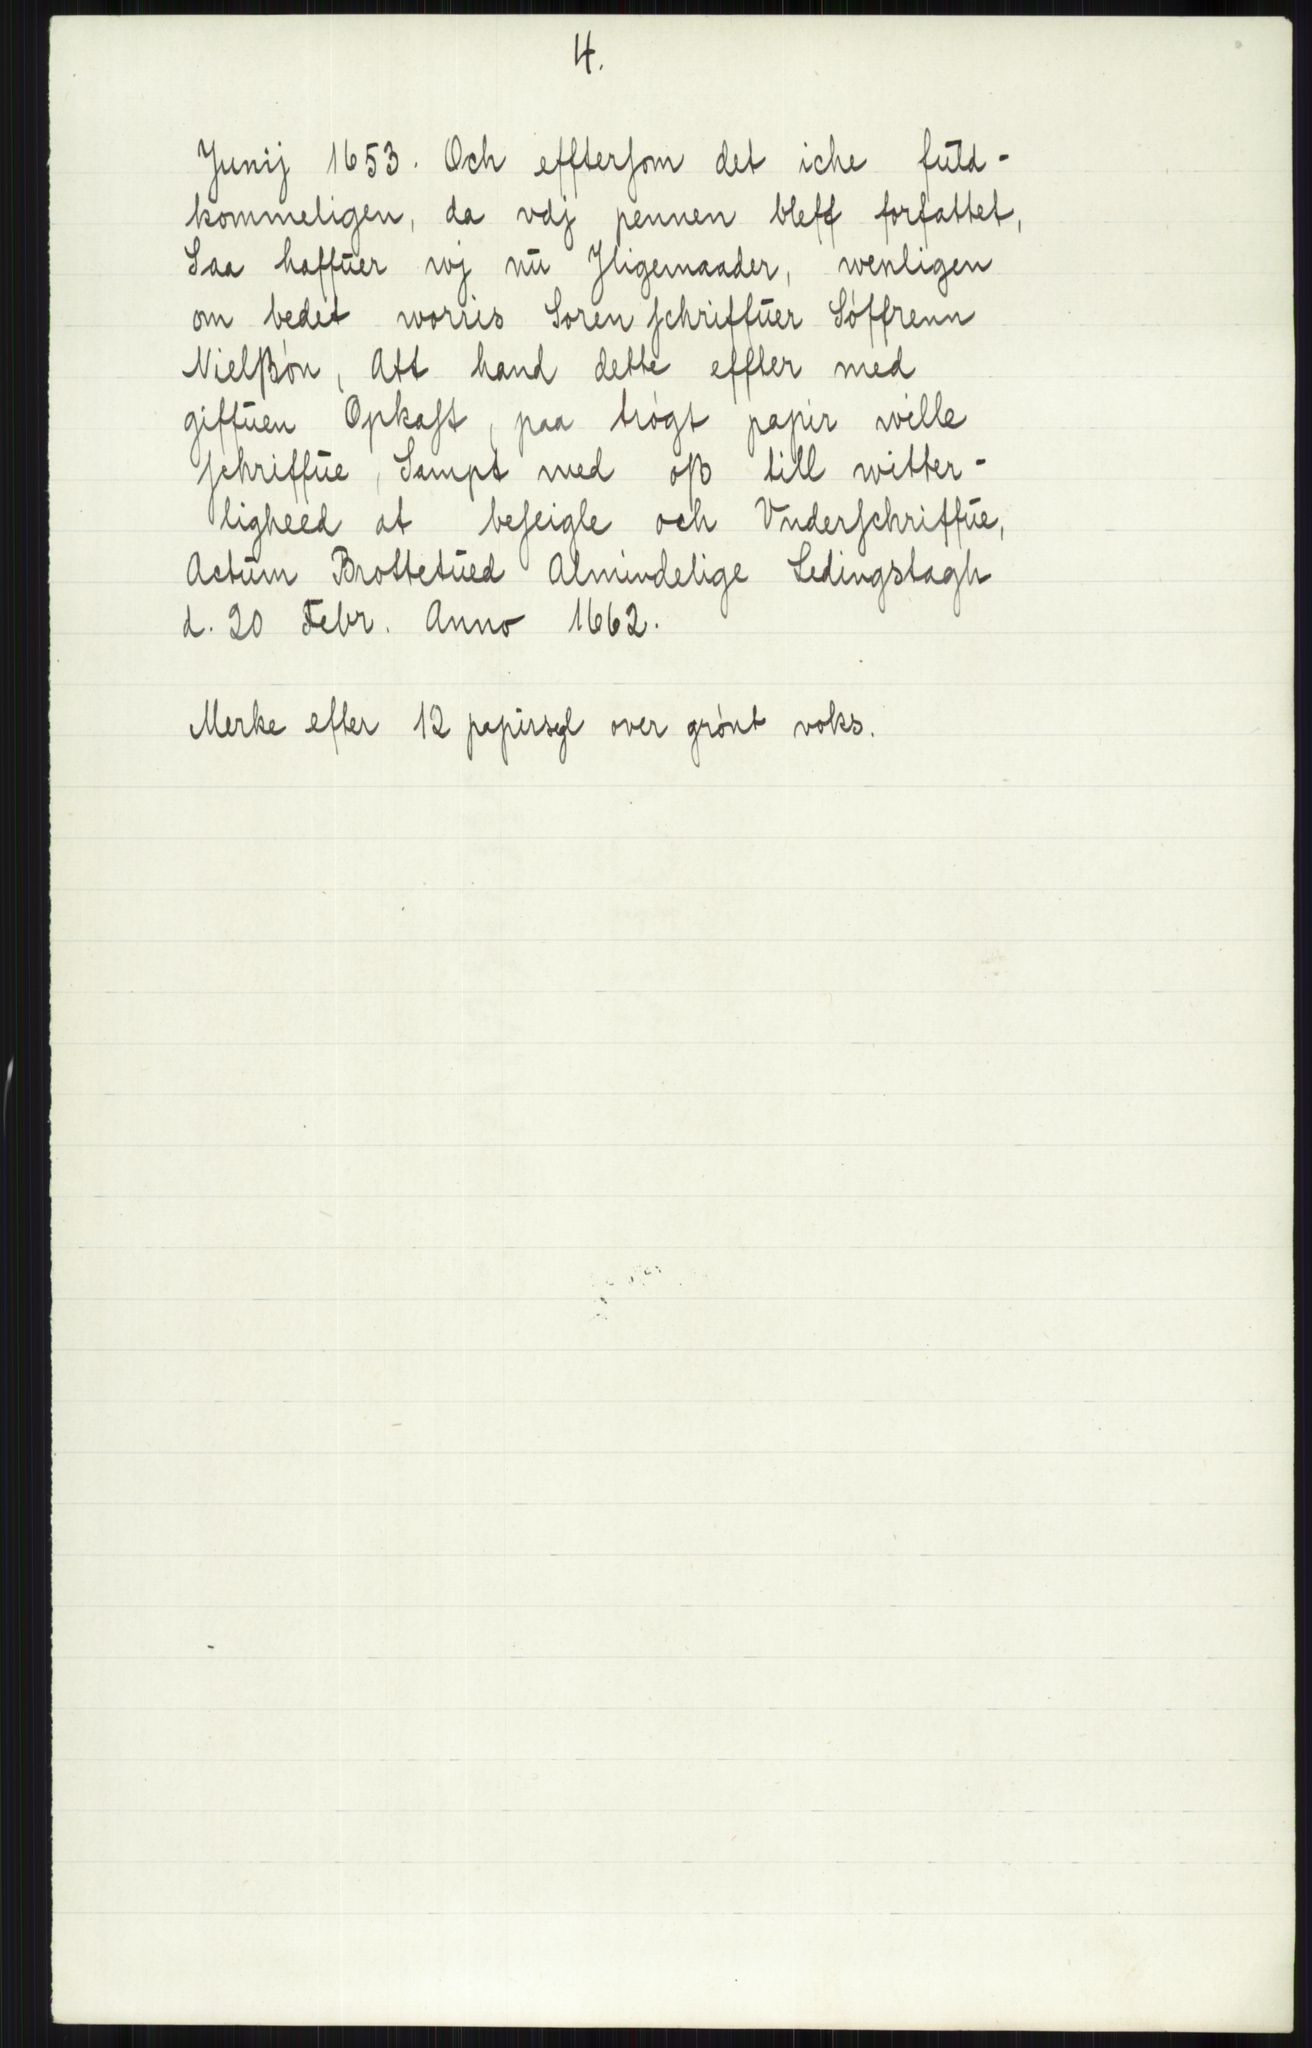 4.
Junij 1653. Och efftersom det iche fuld-
kommeligen, da vdj pennen bleff forfattet,
Saa haffuer wj nu Jligemaader, wenligen
om bedet worris Soren schriffuer Søffrenn
Nielßøn, Att hand dette effter med
giffuen Opkast, paa trøgt papir wille
schriffue, Sampt med oß till witter-
ligheed at beseigle och Vnderschriffue,
Actum Brottetued Almindelige Ledingstagh
d. 20 Febr. Anno 1662.
Merke efter 12 papirsegl over grønt voks.